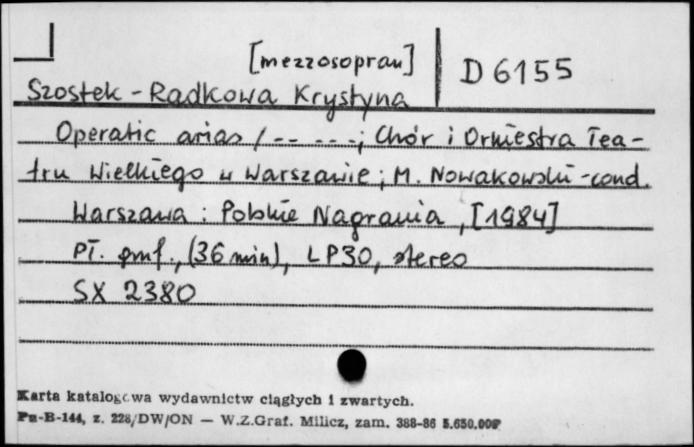 [mezzosopran]
D 6155
Szostek-Radkowa Krystyna
Operatic arias / -- -- -; Chór i Orkiestra Tea-
tru Wielkiego w Warszawie; M. Nowakowski-cond.
Warszawa: Polskie Nagrania, [1984]
Pł. gmf., (36 min), LP30, stereo
SX 2380
Karta katalogowa wydawnictw ciągłych i zwartych.
Pu-B-144, z. 228/DW/ON — W.Z.Graf. Milicz, zam. 388-86 5.650.000